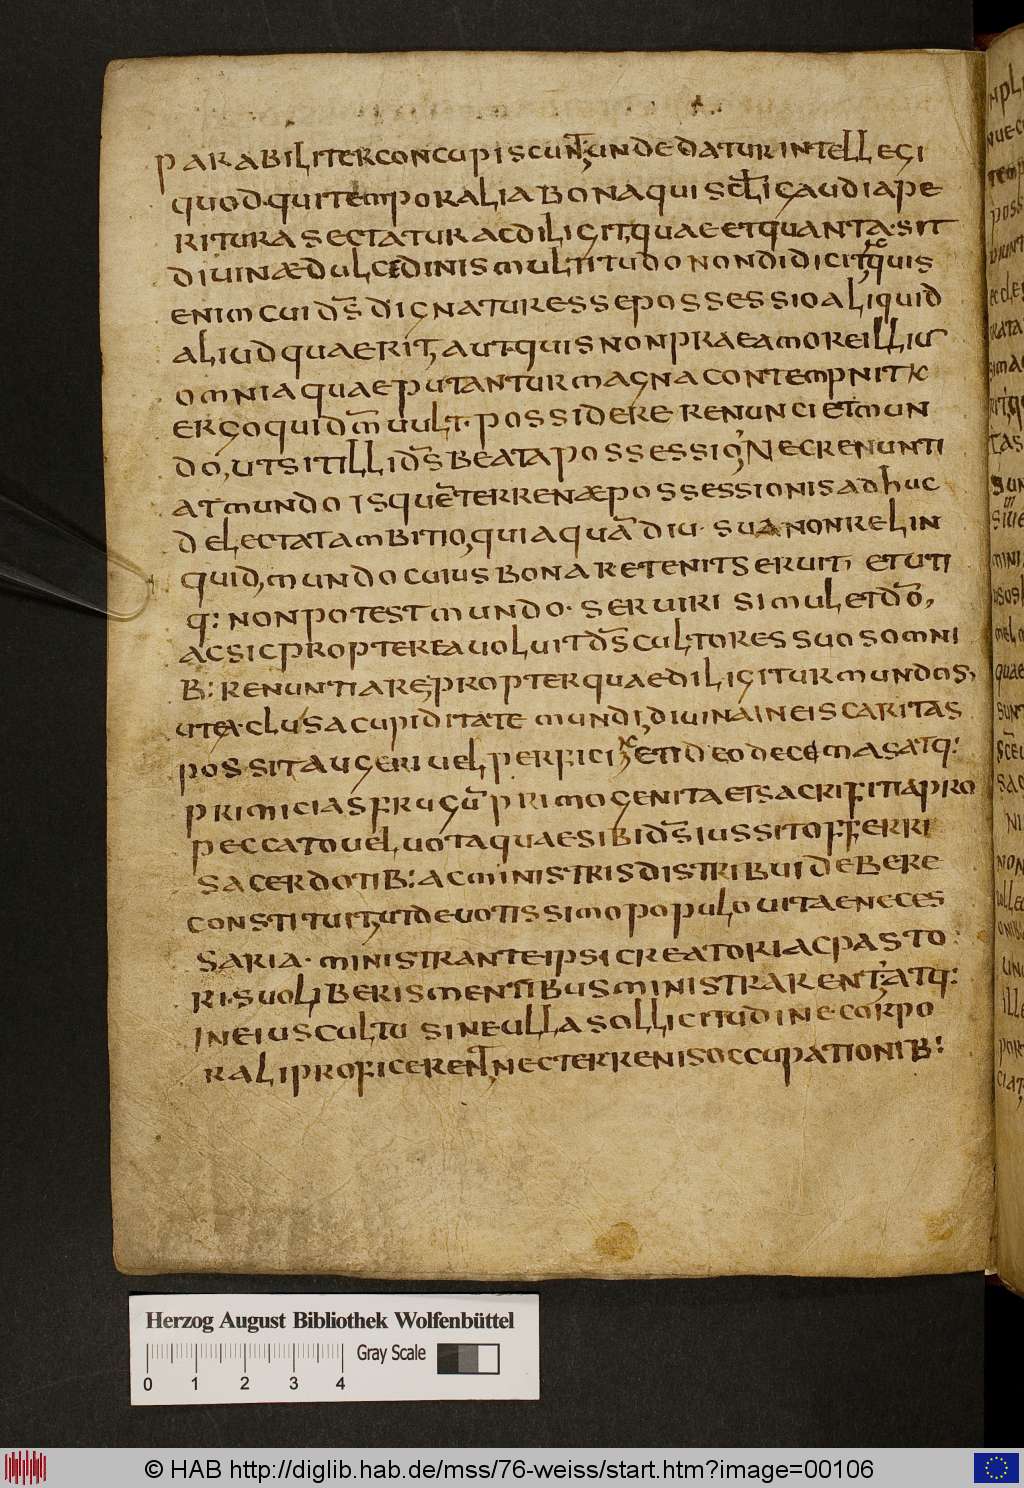 PARABILITER CONCUPISCUNT, UNDE DATUR INTELLEGI
QUOD QUI TEMPORALIA BONA QUI SCLI GAUDIA PE
RITURA SECTATUR AC DILIGIT, QUAE ET QUANTA SIT
DIVINÆ DULCEDINIS MULTITUDO NON DIDICIT, QUIS
ENIM CUI DS DIGNATUR ESSE POSSESSIO ALIQUID
ALIUD QUAERIT, AUT QUIS NON PRAE AMORE ILLIUS
OMNIA QUAE PUTANTUR MAGNA CONTEMPNIT
ERGO QUI DM VULT POSSIDERE RENUNCIET MUN
DO, UT SIT ILLI DS BEATA POSSESSIO, NEC RENUNTI
AT MUNDO IS QUĒ TERRENÆ POSSESSIONIS ADHUC
DELECTAT AMBITIO, QUIA QUĀDIU SUA NON RELIN
QUID, MUNDO CUIUS BONA RETENIT SERUIT ET UTI
Q: NON POTEST MUNDO SERVIRI SIMUL ET DŌ,
AC SIC PROPTEREA VOLUIT DS CULTORES SUOS OMNI
B: RENUNTIARE, PROPTER QUAE DILIGITUR MUNDUS,
UT EXCLUSA CUPIDITATE MUNDI, DIVINA IN EIS CARITAS
POSSIT AUGERI VEL PERFICI, ET IDEO DECEMAS ATQ:
PRIMICIAS FRUGŪ PRIMOGENITA ET SACRIFITIA PRO
PECCATO VEL VOTA QUAE SIBI DS IUSSIT OFFERRI
SACERDOTIB: AC MINISTRIS DISTRIBUI DEBERE
CONSTITUIT, UT DEVOTISSIMO POPULO VITAE NECES
SARIA MINISTRANTE IPSI CREATORI AC PASTO
RI SUO LIBERIS MENTIBUS MINISTRARENT, ATQ:
IN EIUS CULTU SINE ULLA SOLLICITUDINE CORPO
RALI PROFICERENT, NEC TERRENIS OCCUPATIONIB:
Herzog August Bibliothek Wolfenbüttel
Gray Scale
0 1 2 3 4
© HAB http://diglib.hab.de/mss/76-weiss/start.htm?image=00106